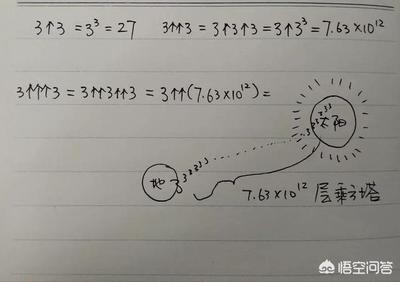 3↑3 = 3³ = 27   3↑↑3 = 3↑3↑3 = 3↑3³ = 7.63×10¹²
3↑↑↑3 = 3↑↑3↑↑3 = 3↑↑(7.63×10¹²) =
太阳
地
7.63×10¹² 层乘方塔
悟空问答